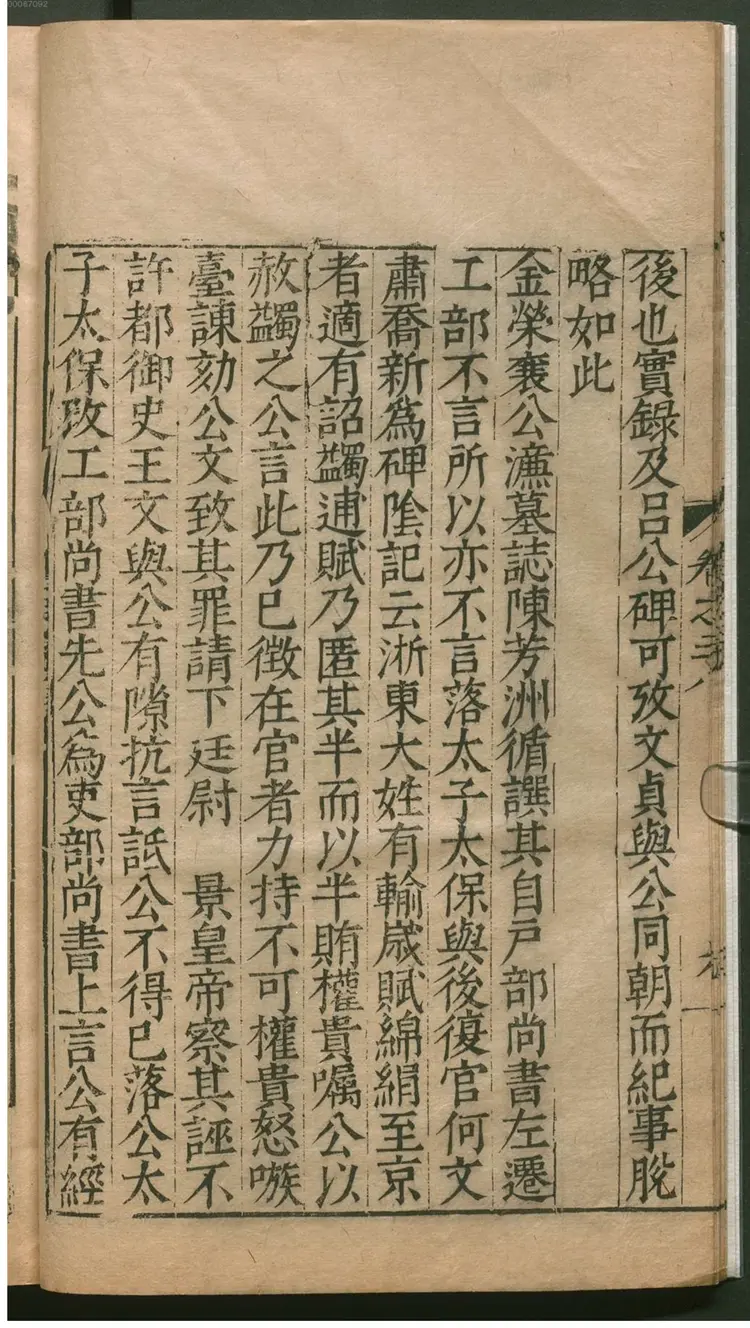 後也實錄及吕公碑可攷文貞與公同朝而紀事脫
略如此
金榮襄公濂墓誌陳芳洲循譔其自戸部尚書左遷
工部不言所以亦不言落太子太保與後復官何文
肅喬新爲碑隂記云浙東大姓有輸歲賦綿絹至京
者適有詔蠲逋賦乃匿其半而以半賄權貴嘱公以
赦蠲之公言此乃已徴在官者力持不可權貴怒嗾
臺諫劾公文致其罪請下廷尉　景皇帝察其誣不
許都御史王文與公有隙抗言詆公不得已落公太
子太保攺工部尚書先公爲吏部尚書上言公有經
00067092